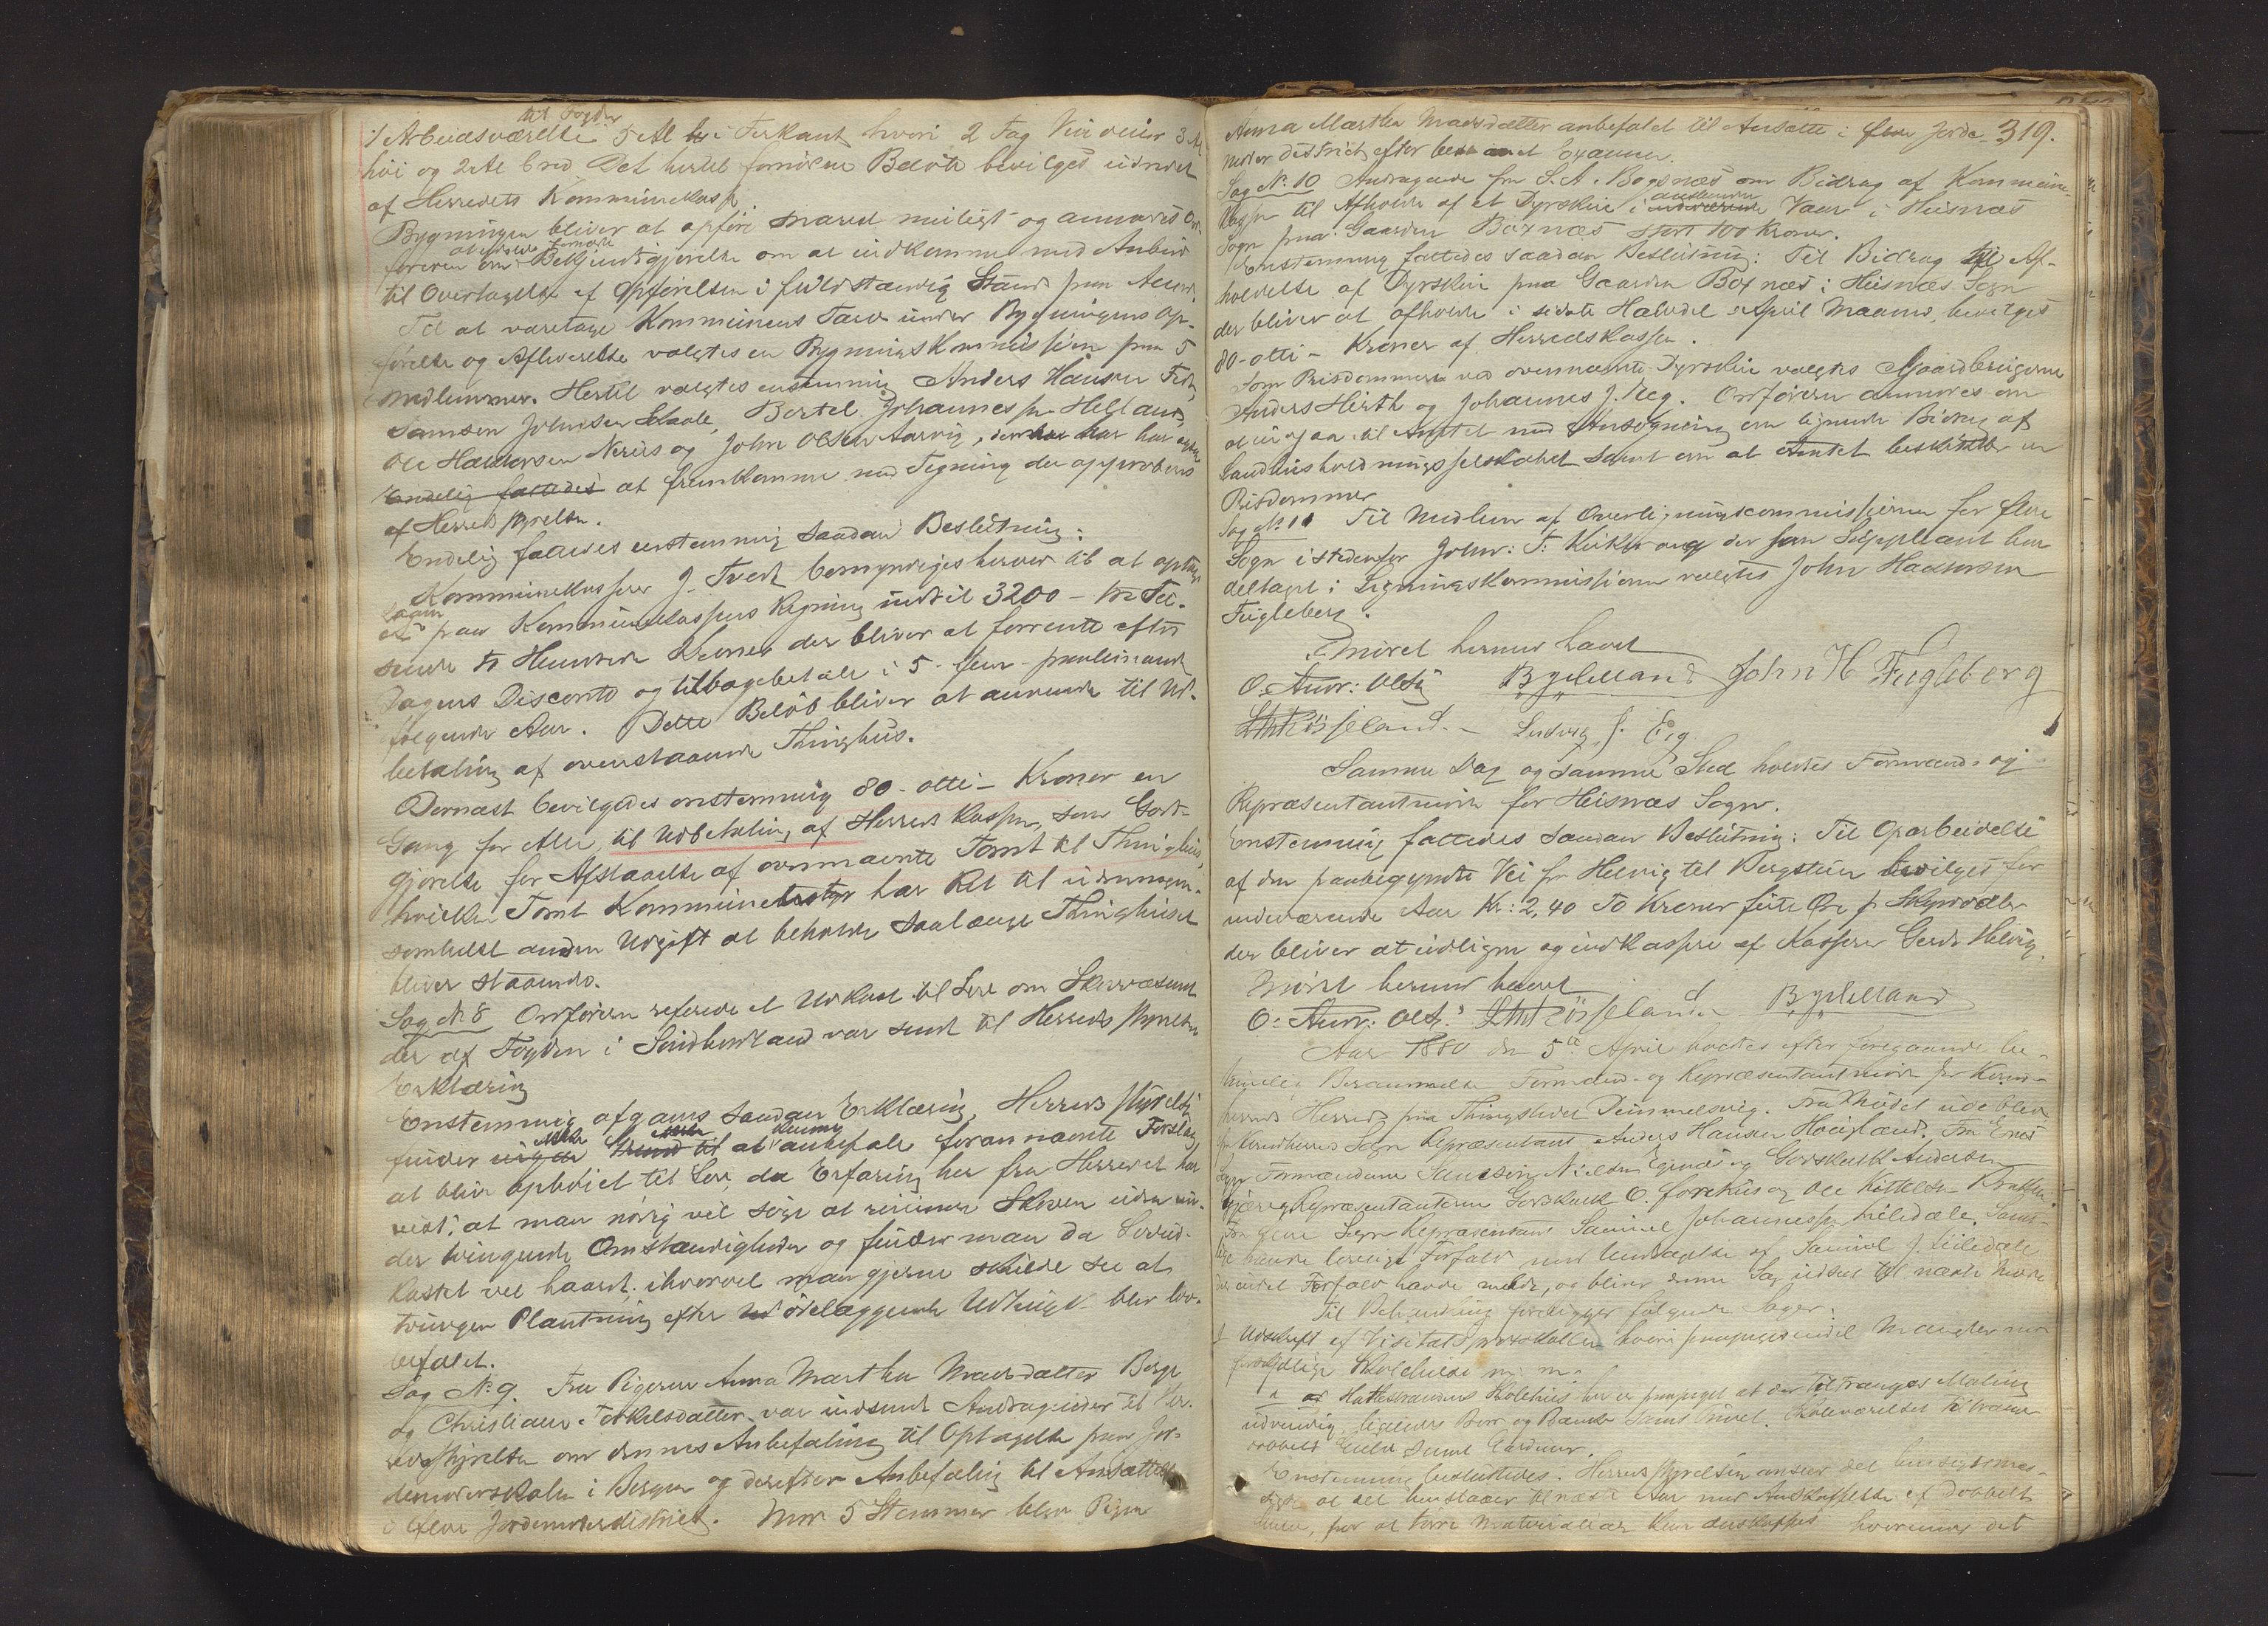 til Fogden
1 Arbeidsværelse 5 Al i Firkant hvori 2 Fag Vinduer 3 Al
høi og 2 Al bred. Det hertil fornødne Beløb bevilges udredet
af Herredets Kommunekasse
Bygningen bliver at opføre snarest muligt og anmodes Ord-
føreren om Bekjendtgjørelse om at indkomme med Anbud
til Overtagelse af Opførelsen i fuldstændig Stand
Til at varetage Kommunens Tarv under Bygningens Op-
førelse og Afleverelse valgtes en Bygningskommission paa 5
Medlemmer. Hertil valgtes enstemmig Anders Hansen
Samson Johnsen Bertel Johannessen Helland
Ole Haldorsen Neriis og John Olsen Aarvig, der har
Endelig fattedes at fremkomme med Tegning der approberes
af Herredsstyrelsen.
Endelig fattedes enstemmig saadan Beslutning:
Kommunekasserer J. Tvedt bemyndiges herved til at optage
Laan paa Kommunekassens Regning indtil 3200 – tre Tu-
sinde to Hundrede Kroner der bliver at forrente efter
Dagens Disconto og tilbagebetale i 5 – fem – paahinanden
følgende Aar. Dette Beløb bliver at anvende til Ud-
betaling af ovenstaaende Thinghus.
Dernæst bevilgedes enstemmig 80 – otti – Kroner en
Gang for Alle, til Udbetaling af Herredskassen, som Godt-
gjørelse for Afstaaelse af ovennævnte Tomt til Thinghus,
hvilken Tomt Kommunebestyr har Ret til uden nogen-
somhelst anden Udgift at beholde saalænge Thinghuset
bliver staaende.
Sag No 8 Ordføreren refererede et Udkast til Lov om Skovvæsenet
der af Fogden i Søndhordland var sendt til Herredsstyrelsen
Erklæring
Enstemmig afgaves saadan Erklæring, Herredsstyrelsen
finder ikke at kunne anbefale forannævnte Forslag
at blive ophøiet til Lov, da Erfaring her fra Herredet har
vist, at man nødig vil søge at ruinere Skoven uden un-
der tvingende Omstændigheder og finder man da Lovud-
kastet vel haardt, ihvorvel man gjerne skulde see at
tvungen Plantning efter ødelæggende Udhugst blev lov-
befalet.
Sag No 9. Fra Pigerne Anna Martha Madsdatter Berge
og Christiane Torkelsdatter var indsendt Andragender til Her-
redsstyrelsen om dennes Anbefaling til Optagelse paa Jor-
demoderskolen i Bergen og derefter Anbefaling til Ansættelse
i Ølve Jordemoderdistrict. Med 5 Stemmer blev Pigen
319.
Anna Martha Madsdatter anbefalet til Ansætte i Ølve Jorde-
moder district efter bestaaet Examen.
Sag No 10 Andragende fra S. A. Bogsnæs om Bidrag af Kommune-
kassen til Afholdelse af et Dyrskue i anstundende Vaar i Husnæs
Sogn paa Gaarden Bogsnæs stort 100 Kroner.
Enstemmig fattedes saadan Beslutning: Til Bidrag til Af-
holdelse af Dyrskue paa Gaarden Bognæs i Husnæs Sogn
der bliver at afholde i sidste Halvdel April Maaned, bevilges
80 – otti – Kroner af Herredskassen.
Som Prisdommere ved ovennævnte Dyrskue valgtes Gaardbrugerne
Anders Hirth og Johannes J. Reg. Ordføreren anmodes om
at indgaa til Amtet med Ansøgning om lignende Bidrag af
Landhusholdningsselskabet samt om at Amtet beskikker en
Prisdommer
Sag No 11 Til Medlem af Overligningscommissionen for Ølve
Sogn istedenfor John: T: der som Suppleant har
deltaget i Ligningskommissionen valgtes John Haavorsen
Fugleberg.
Mødet hermed hævet
O. Andr: Olsen Bythelland John H Fugleberg
Røsseland. – Ludvig J. Eeg
Samme Dag og samme Sted holdtes Formands- og
Repræsentantmøde for Husnæs Sogn.
Enstemmig fattedes saadan Beslutning: Til Oparbeidelse
af den paabegyndte Vei fra Helvig til Bergstuen bevilges for
indeværende Aar Kr: 2,40 To Kroner firti Øre pr Skyldaler
der bliver at udligne og indkassere af Kasserer Gerdt Helvig.
Mødet hermed hævet
O: Andr: Ols: Røsseland Bythelland
Aar 1880 den 5te April holdtes efter foregaaende be-
timelig Berammelse Formænd- og Repræsentantmøde for Kvind-
herreds Herred paa Thingstedet Dimmelsvig. Fra Mødet udeblev
for Kvindherred Sogn Repræsentant Anders Hansen Høigland. Fra Enes
Sogn Formændene Nielsen og Godskalk Andersen
Repræsentanterne Godskalk O. og Ole Kittelsen
Fra Ølve Sogn Repræsentant Samuel Johannessen Lilledale. Samt-
lige havde lovligt Forfald med Undtagelse af Samuel J. Lilledale
der intet Forfald havde meldt, og bliver denne Sag udsat til næste Møde
Til Behandling foreligger følgende Sager:
1 Udskrift af Visitatsprotokollen hvori paapeges endel Mangler ved
forskjellige Skolehuse m. m.
a Hatlestrandens Skolehus her er paapeget at der Tiltrænges Maling
udvendig, ligeledes Bord og Bænke samt Skolevær
dobbelt samt Gardiner.
Enstemmig besluttedes. Herredsstyrelsen anseer det hensigtsmæs-
sigst at det henstaaer til næste Aar med Anskaffelse af dobbelt
for at tørre Materialier kan anskaffes hvorimod det